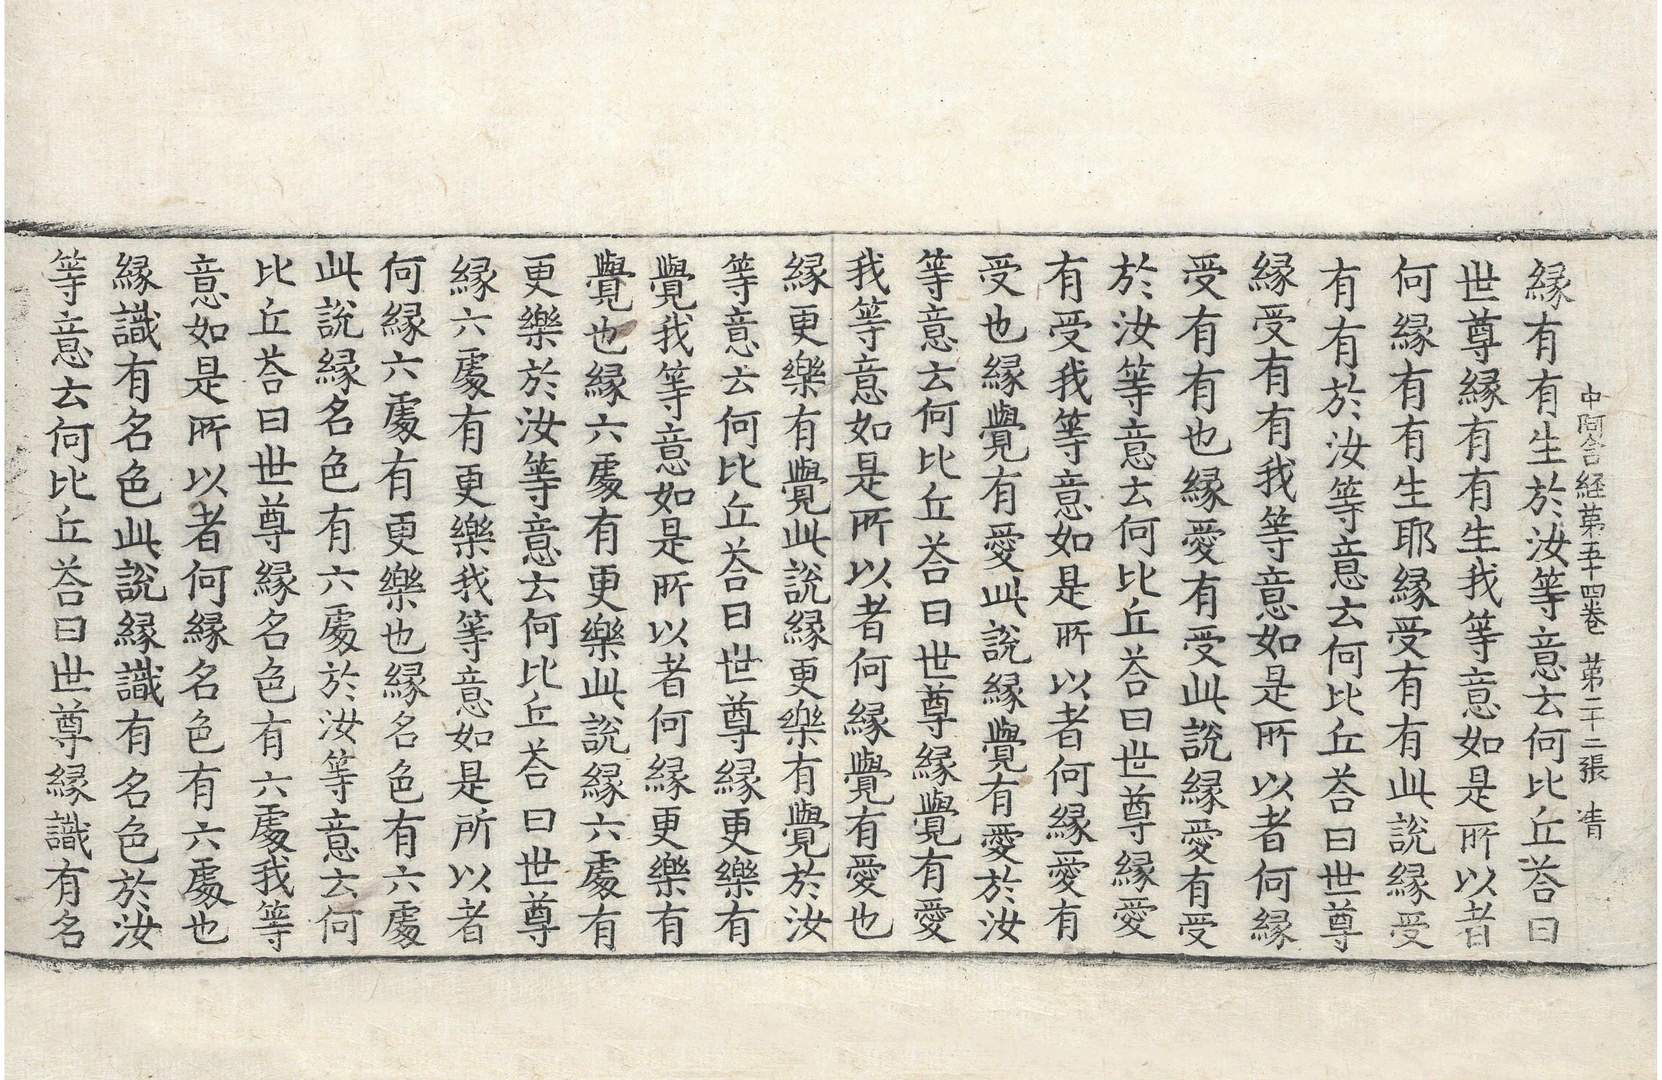 中阿含経第五十四巻 第二十二張 凊
縁有有生於汝等意云何比丘荅曰
世尊縁有有生我等意如是所以者
何縁有有生耶縁受有有此說縁受
有有於汝等意云何比丘荅曰世尊
縁受有有我等意如是所以者何縁
受有有也縁愛有受此說縁愛有受
於汝等意云何比丘荅曰世尊縁愛
有受我等意如是所以者何縁愛有
受也縁覺有愛此說縁覺有愛於汝
等意云何比丘荅曰世尊縁覺有愛
我等意如是所以者何縁覺有愛也
縁更樂有覺此說縁更樂有覺於汝
等意云何比丘荅曰世尊縁更樂有
覺我等意如是所以者何縁更樂有
覺也縁六處有更樂此說縁六處有
更樂於汝等意云何比丘荅曰世尊
縁六處有更樂我等意如是所以者
何縁六處有更樂也縁名色有六處
此說縁名色有六處於汝等意云何
比丘荅曰世尊縁名色有六處我等
意如是所以者何縁名色有六處也
縁識有名色此說縁識有名色於汝
等意云何比丘荅曰世尊縁識有名